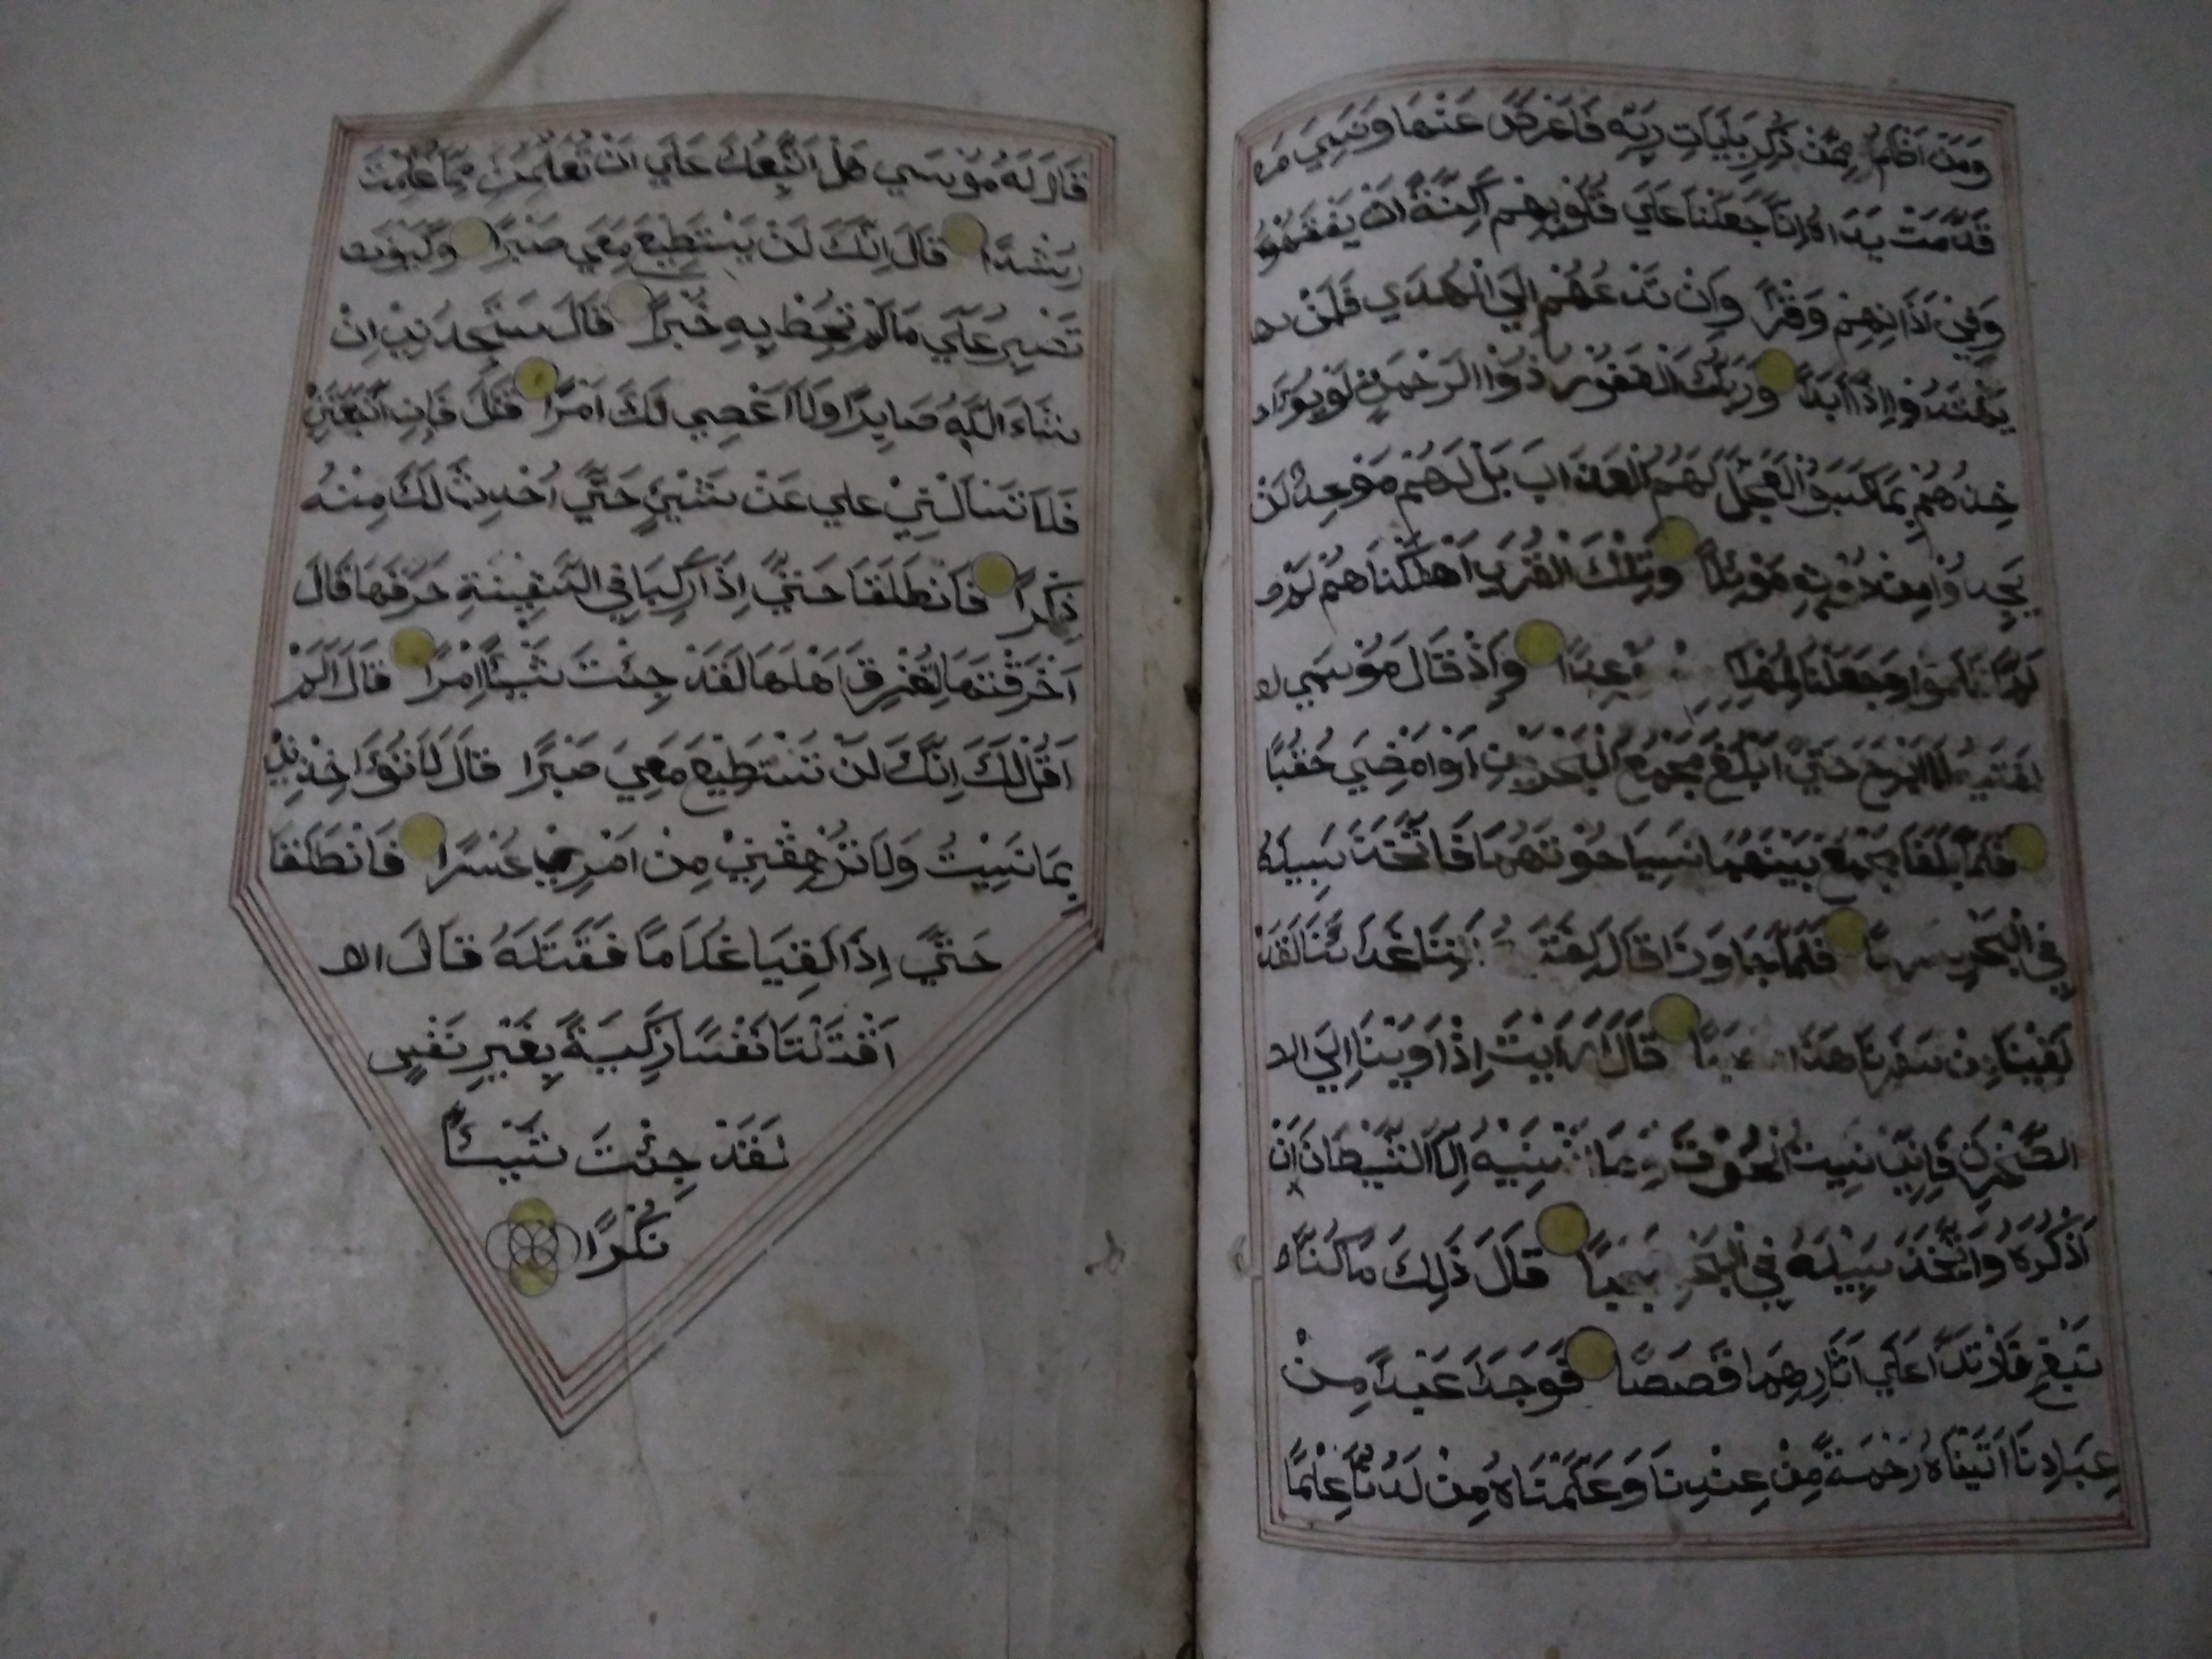 وَمَنْ اَظْلَمُ مِمَّنْ ذُكِّرَ بِئَايَاتِ رَبِّهِ فَاَعْرَضَ عَنْهَا وَنَسِيَ مَا
قَدَّمَتْ يَدَاهُ اِنَّا جَعَلْنَا عَلَي قُلُوْبِهِمْ اَكِنَّةً اَنْ يَفْقَهُوْهُ
وَفِيْ اَذَانِهِمْ وَقْرًا وَاِنْ تَدْعُهُمْ اِلَي الْهُدَي فَلَنْ يـ
يَهْتَدُوْا اِذًا اَبَدًا وَرَبُّكَ الْغَفُوْرُ ذُوْا الرَّحْمَةِ لَوْ يُوَاـ
خِذُهُمْ بِمَا كَسَبُوْا لَعَجَّلَ لَهُمُ الْعَذَابَ بَلْ لَهُمْ مَوْعِدٌ لَنْ
يَجِدُوْا مِنْ دُوْنِهِ مَوْئِلًا وَتِلْكَ الْقُرَي اَهْلَكْنَاهُمْ لَمـ
لَمَّا ظَلَمُوْا وَجَعَلْنَا لِمَهْلِكِـ مَوْعِدًا وَاِذْ قَالَ مُوْسَي لـ
لِفَتَيهُ لَا اَبْرَحُ حَتَّي اَبْلُغَ مَجْمَعَ الْبَحْرَيْنِ اَوْ اَمْضِيَ حُقُبًا
فَلَمَّا بَلَغَا مَجْمَعَ بَيْنَهُمَا نَسِيَا حُوْتَهُمَا فَاتَّخَذَ سَبِيلَهُ
فِي الْبَحْرِ سَرَبًا فَلَمَّا جَاوَزَا قَالَ لِفَتَـ اٰتِنَا غَدَائَنَا لَقَدْ
لَقِيْنَا مِنْ سَفَرِنَا هَذَا نَصَبًا قَالَ اَرَاَيْتَ اِذْ اَوَيْنَا اِلَي الـ
الصَّخْرَةِ فَاِنِّيْ نَسِيْتُ الْحُوْتَ وَمَا اَنْسَنِيْهُ اِلَّا الشَّيْطَانُ اَنْ
اَذْكُرَهُ وَاتَّخَذَ سَبِيْلَهُ فِي الْبَحْرِ عَجَبًا قَالَ ذَلِكَ مَا كُنَّا
نَبْغِ فَارْتَدَّا عَلَي اَثَارِهِمَا قَصَصًا فَوَجَدَا عَبْدًا مِنْ
عِبَادِنَا اَتَيْنَاهُ رَحْمَةً مِنْ عِنْدِنَا وَعَلَّمْنَاهُ مِنْ لَدُنَّا عِلْمًا
قَالَ لَهُ مُوْسَي هَلْ اَتَّبِعُكَ عَلَي اَنْ تُعَلِّمَنِ مِمَّا عُلِّمْتَ
رُشْدًا قَالَ اِنَّكَ لَنْ يَسْتَطِيْعَ مَعِيَ صَبْرًا وَكَيْفَ
تَصْبِرُ عَلَي مَالَمْ تُحِطْ بِهِ خُبْرًا قَالَ سَتَجِدُنِيْ اِنْ
شَاءَ اللَّهُ صَابِرًا وَلَا اَعْصِي لَكَ اَمْرًا قَالَ فَاِنِ اتَّبَعْتَنِيْ
فَلَا تَسْاَلْنِيْ علي عَنْ شَيْئٍ حَتَّي اُحْدِثَ لَكَ مِنْهُ
ذِكْرًا فَانْطَلَقَا حَتَّي اِذَا رَكِبَا فِي السَّفِيْنَةِ خَرَقَهَا قَالَ
اَخَرَقْتَهَا لِتُغْرِقَ اَهْلَهَا لَقَدْ جِئْتَ شَيْئًا اِمْرًا قَالَ اَلَمْ
اَقُلْ لَكَ اِنَّكَ لَنْ تَسْتَطِيْعَ مَعِيَ صَبْرًا قَالَ لَا تُؤَاخِذْنِيْ
بِمَا نَسِيْتُ وَلَا تُرْهِقْنِيْ مِنْ اَمْرِيْ عُسْرًا فَانْطَلَقَا
حَتَّي اِذَا لَقِيَا غُلَامًا فَقَتَلَهُ قَالَ ا
اَقْتَلْتَ نَفْسًا زَكِيَةً بِغَيْرِ نَفْسٍ
لَقَدْ جِئْتَ شَيْئًا
نُكْرًا